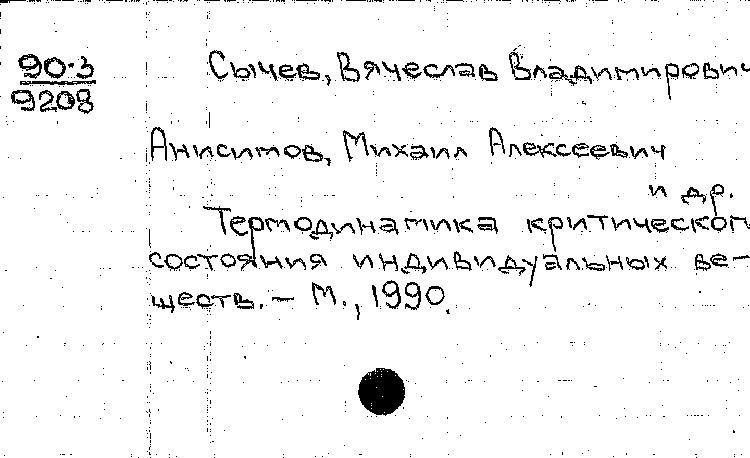 90-3
9208
Сычев, Вячеслав Владимирович
Анисимов, Михаил Алексеевич
и др.
Термодинамика критического
состояния индивидуальных ве-
ществ. – М., 1990.